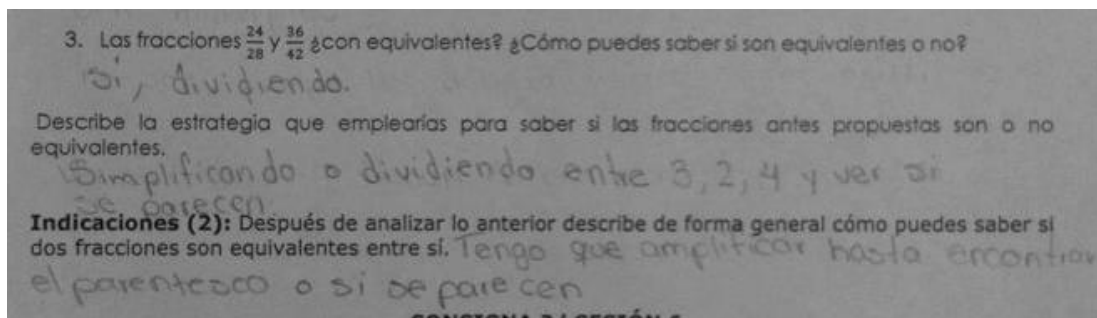 3. Las fracciones 24/28 y 36/42 ¿con equivalentes? ¿Cómo puedes saber si son equivalentes o no?
Sí, dividiendo.
Describe la estrategia que emplearías para saber si las fracciones antes propuestas son o no
equivalentes.
Simplificando o dividiendo entre 3, 2, 4 y ver si
se parecen
Indicaciones (2): Después de analizar lo anterior describe de forma general cómo puedes saber si
dos fracciones son equivalentes entre sí. Tengo que amplificar hasta encontrar
el parentesco o si se parecen